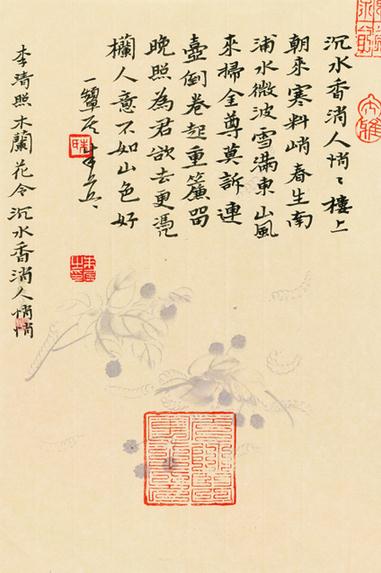 沉水香消人悄〻樓上
朝來寒料峭春生南
浦水微波雪滿東山風
來掃金尊莫訴連
壺倒卷起重簾留
晚照為君欲去更憑
欄人意不如山色好
李清照木蘭花令沉水香消人悄悄